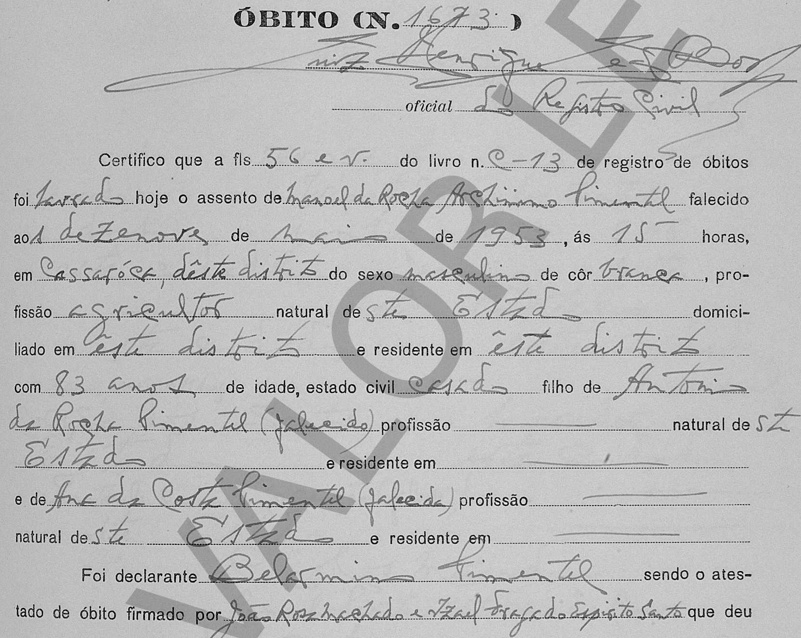 ÓBITO (N. 1673)
Luiz Henrique
oficial do Registro Civil
Certifico que a fls 56 e v. do livro n. C-13 de registro de óbitos
foi lavrado hoje o assento de Manoel da Rocha Archimimo Pimentel falecido
aos dezenove de maio de 1953, ás 15 horas,
em Cassaróca, dêste distrito do sexo masculino de côr branca, pro-
fissão agricultor natural deste Estado domici-
liado em êste distrito e residente em êste distrito
com 83 anos de idade, estado civil casado filho de Antonio
da Rocha Pimentel (falecido) profissão natural deste
Estado e residente em
e de Ana da Costa Pimentel (falecida) profissão
natural deste Estado e residente em
Foi declarante Belarmino Pimentel sendo o ates-
tado de óbito firmado por João Rosa Machado e Izael Fraga do Espirito Santo que deu
VALOR LE